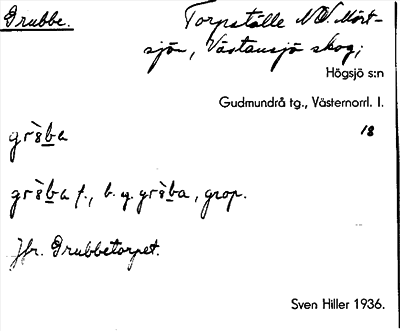 Grubbe.
Torpställe NV. Mört-
sjön, Västansjö skog;
Högsjö s:n
Gudmundrå tg., Västernorrl. l.
18
grùb̲a
grùb̲a f., b. g. grùb̲a, grop.
Jfr. Grubbetorpet.
Sven Hiller 1936.